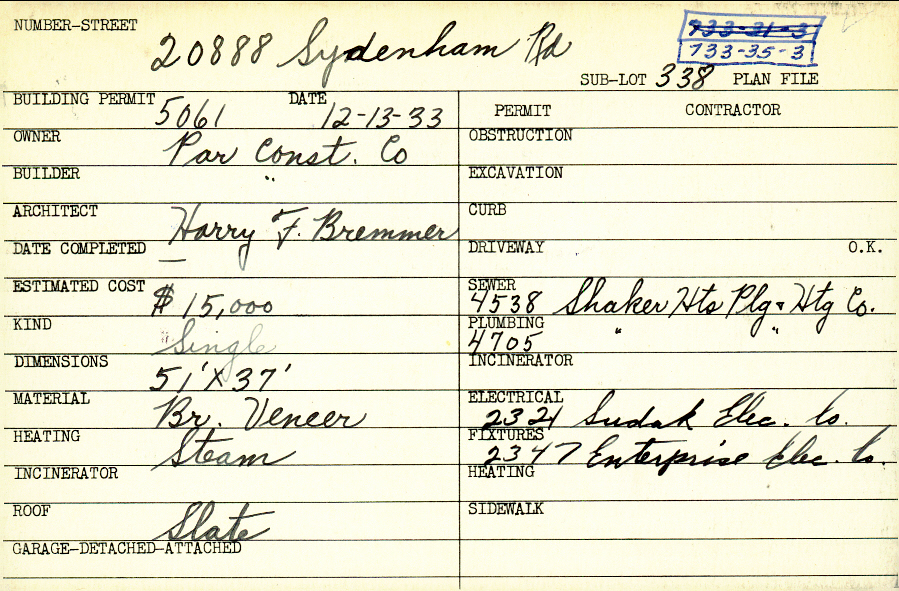 NUMBER-STREET
20888 Sydenham Rd
733-31-3
733-35-3
SUB-LOT 338 PLAN FILE
BUILDING PERMIT 5061 DATE 12-13-33
PERMIT CONTRACTOR
OWNER Par Const. Co
OBSTRUCTION
BUILDER "
EXCAVATION
ARCHITECT Harry F. Bremmer
CURB
DATE COMPLETED —
DRIVEWAY O.K.
ESTIMATED COST $15,000
SEWER 4538 Shaker Hts Plg & Htg Co.
KIND Single
PLUMBING 4705 " "
DIMENSIONS 51' X 37'
INCINERATOR
MATERIAL Br. Veneer
ELECTRICAL 2321 Sudak Elec. Co.
HEATING Steam
FIXTURES 2347 Enterprise Elec. Co.
INCINERATOR
HEATING
ROOF Slate
SIDEWALK
GARAGE-DETACHED-ATTACHED